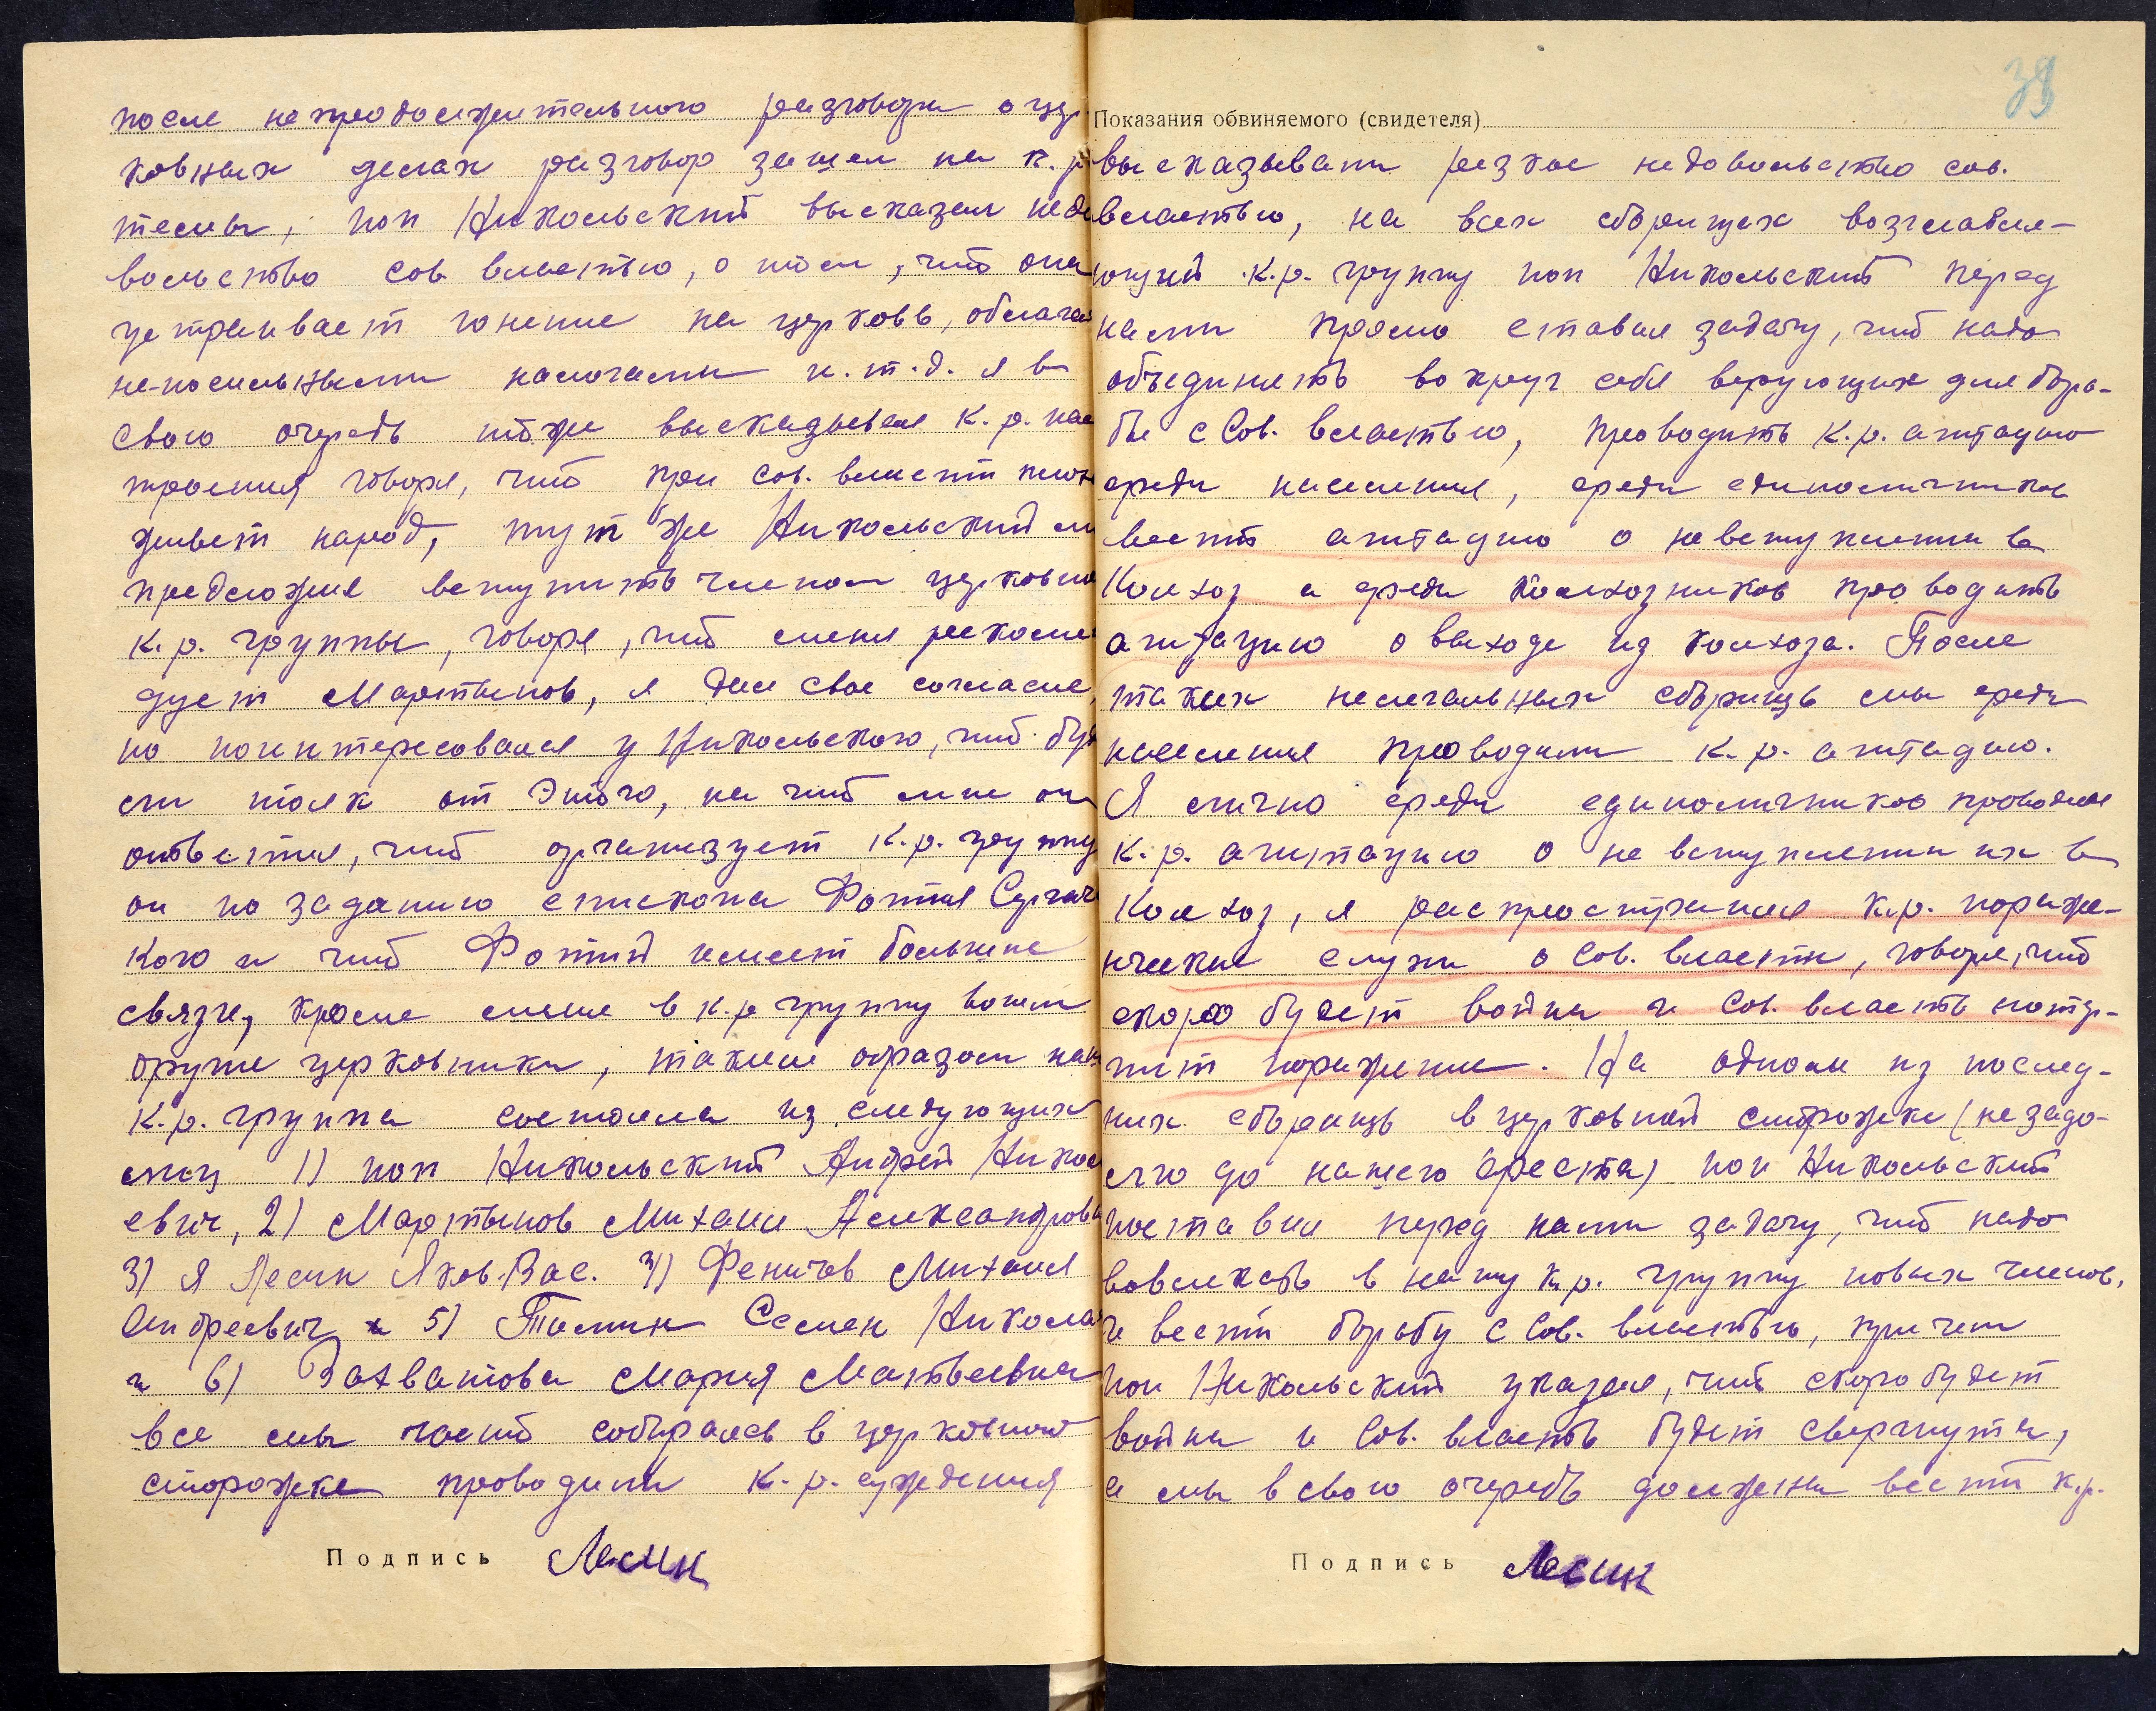 после непродолжительного разговора о цер
ковных делах разговор зашел на к.р
темы, поп Никольский высказал недо
вольство сов властью, о том, что она
устраивает гонение на церковь, облагае
не-посильными налогами и.т.д. я в
свою очередь тоже высказывал к.р. нас
троения говоря, что при сов. власти плохо
живет народ, тут же Никольский мн
предложил вступить членом церковно
к.р. группы, говоря, что меня рекомен
дует Мартынов, я дал свое согласие,
но поинтересовался у Никольского, что буд
ет толк от этого, на что мне он
ответил, что организует к.р. группу
он по заданию епископа Фотия Сергачс
кого и что Фотий имеет большие
связи, кроме меня в к.р группу вошли
другие церковники, таким образом наша
к.р. группа состояла из следующих
лиц 1) поп Никольский Андрей Никола
евич, 2) Мартынов Михаил Александров
3) Я Лесин Яков. Вас. 4) Феничев Михаил
Андреевич 5) Томин Семен Никола
и 6) Захватова Мария Матвеевна
все мы часто собирались в церковной
сторожке проводили к.р. суждения
Подпись Лесин
39
Показания обвиняемого (свидетеля)
высказывали резкое недовольство сов.
властью, на всех сборищах возглавля-
ющий к.р. группу поп Никольский перед
нами прямо ставил задачу, что надо
объединять вокруг себя верующих для борь-
бы с Сов. властью, проводить к.р. агитацию
среди населения, среди единоличников
вести агитацию о невступлении в
Колхоз а среди колхозников проводить
агитацию о выходе из колхоза. После
таких нелегальных сборищь мы среди
населения проводили к.р. агитацию.
Я лично среди единоличников проводил
к.р. агитацию о не вступлении их в
Колхоз, я распространял к.р. пораже-
нческие слухи о Сов. власти, говоря, что
скоро будет война и Сов. власть потер-
пит поражение. На одном из послед-
них сборищь в церковной сторожке (незадо-
лго до нашего ареста) поп Никольский
поставил перед нами задачу, что надо
вовлекать в нашу к.р. группу новых членов,
и вести борьбу с Сов. властью, причем
поп Никольский указал, что скоро будет
война и Сов. власть будет свергнута,
а мы в свою очередь должны вести к.р.
Подпись Лесин